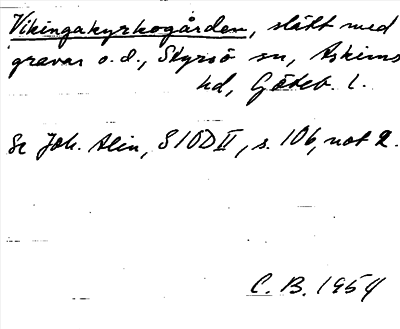 Vikingakyrkogården, slätt med
gravar o.d., Styrsö sn, Askims
hd, Göteb. l.
Se Joh. Alin, SIOD II, s. 106, not 2.
C. B. 1954